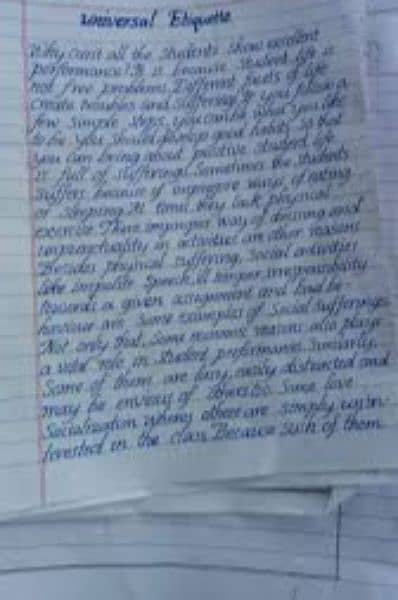 Universal Etiquette
Why can't all the students show excellent
performance? It is because student life is
not free problems. Different facets of life
create troubles and suffering. If you follow a
few simple steps, you can be what you like
to be. You should develop good habits so that
you can bring about positive student life
is full of suffering. Sometimes the students
suffers because of improper ways of eating
or sleeping. At times they lack physical
exercise. Then improper way of dressing and
unpunctuality in activities are other reasons
Besides physical suffering, Social activities
like impolite Speech, ill temper irresponsibility
towards a given assignment and bad be-
haviour are some examples of Social sufferings
Not only that, Some reasons also plays
a vital role in Student preformances. Similarly,
Some of them are lazy, easily distracted and
may be envious of others. Some love
Socialization where others are simply unin-
terested in the class. Because such of them